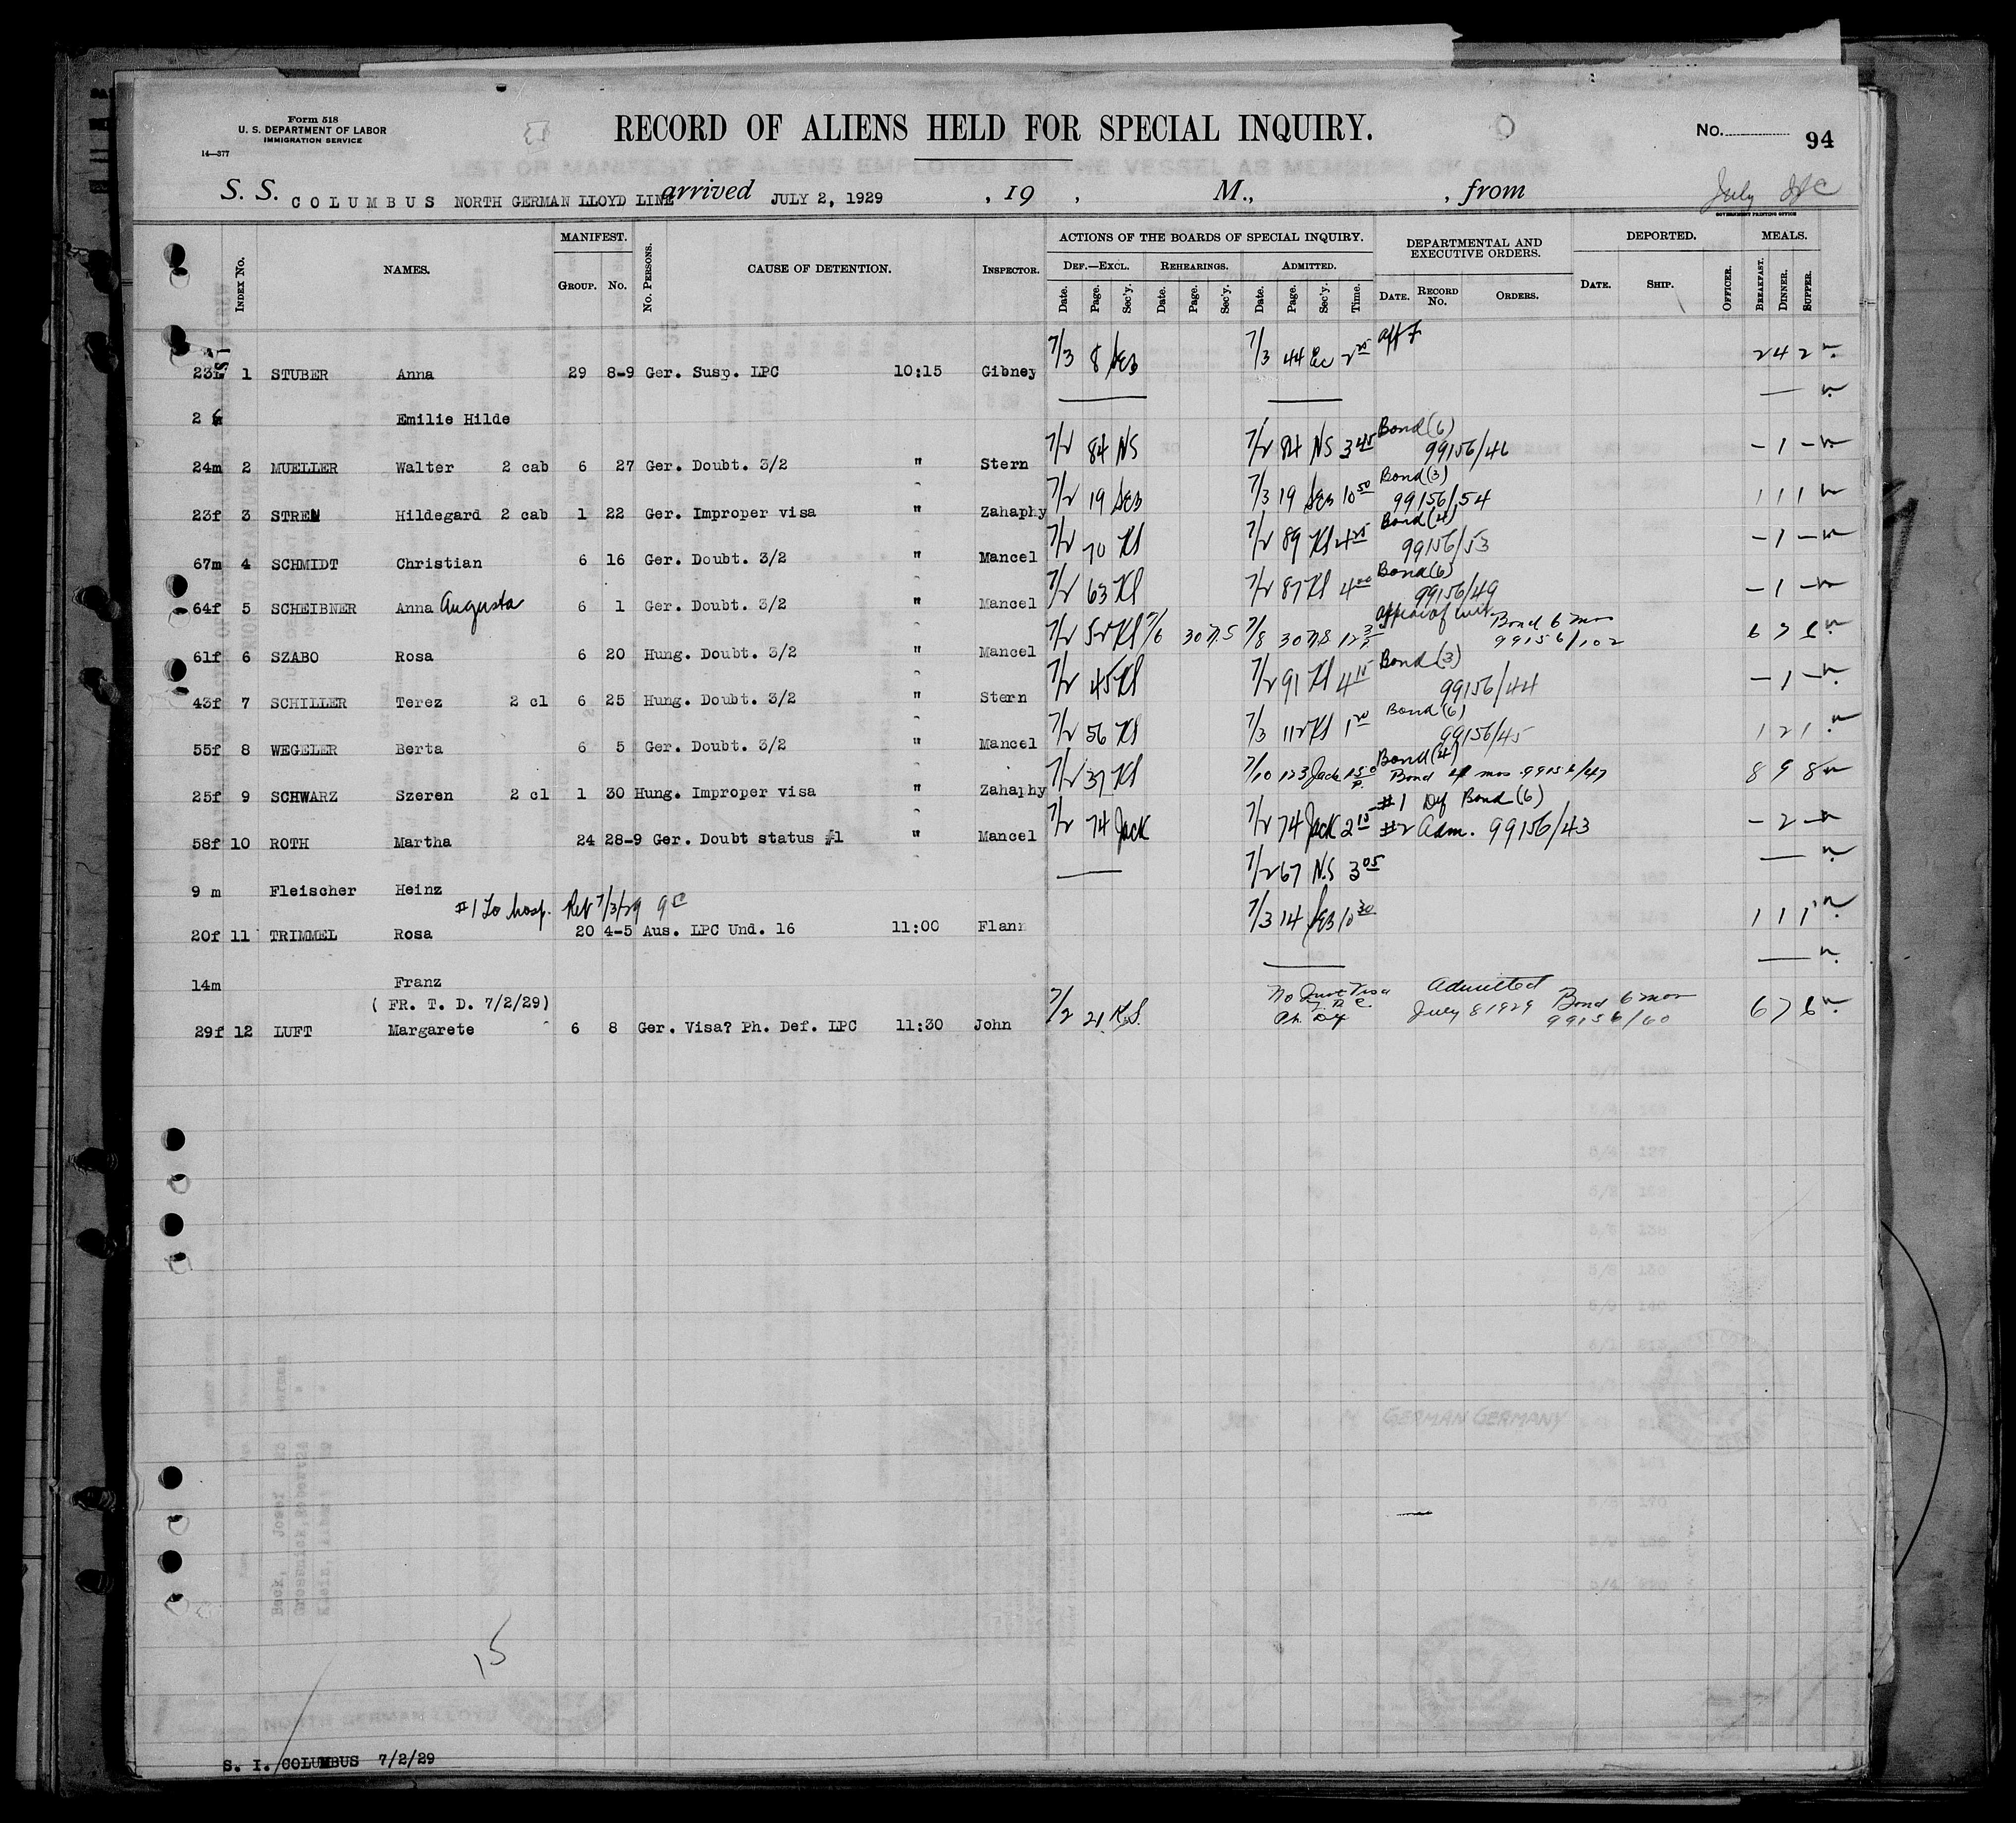 Form 518
U. S. DEPARTMENT OF LABOR
IMMIGRATION SERVICE
14—377
RECORD OF ALIENS HELD FOR SPECIAL INQUIRY.
No. 94
S. S. COLUMBUS NORTH GERMAN LLOYD LINE arrived JULY 2, 1929, 19 , M., , from July
GOVERNMENT PRINTING OFFICE
Index No. NAMES. MANIFEST. Group. No. No. Persons. CAUSE OF DETENTION. Inspector. ACTIONS OF THE BOARDS OF SPECIAL INQUIRY. DEPARTMENTAL AND EXECUTIVE ORDERS. DEPORTED. MEALS.
Def.—Excl. Rehearings. Admitted.
Date. Page. Sec'y. Date. Page. Sec'y. Date. Page. Sec'y. Time. Date. Record No. Orders. Date. Ship. Officer. Breakfast. Dinner. Supper.
1 STUBER Anna 29 8-9 Ger. Susp. LPC 10:15 Gibney 7/3 8 7/3 44 Ec 2 2 4 2
2 Emilie Hilde
24m 2 MUELLER Walter 2 cab 6 27 Ger. Doubt. 3/2 " Stern 7/2 84 NS 7/2 84 NS 3 45 Bond (6) 99156/46 – 1 –
23f 3 STREN Hildegard 2 cab 1 22 Ger. Improper visa " Zahaphy 7/2 19 7/3 19 10 50 Bond (3) 99156/54 1 1 1
67m 4 SCHMIDT Christian 6 16 Ger. Doubt. 3/2 " Mancel 7/2 70 Kl 7/2 89 Kl 4 25 Bond (4) 99156/53 – 1 –
64f 5 SCHEIBNER Anna Augusta 6 1 Ger. Doubt. 3/2 " Mancel 7/2 63 Kl 7/2 87 Kl 4 00 Bond (6) 99156/49 – 1 –
61f 6 SZABO Rosa 6 20 Hung. Doubt. 3/2 " Mancel 7/2 52 Kl 7/6 30 N.S 7/8 30 N.S 12 Bond 6 mos 99156/102 6 7 6
43f 7 SCHILLER Terez 2 cl 6 25 Hung. Doubt. 3/2 " Stern 7/2 45 Kl 7/2 91 Kl 4 15 Bond (3) 99156/44 – 1 –
55f 8 WEGELER Berta 6 5 Ger. Doubt. 3/2 " Mancel 7/2 56 Kl 7/3 112 Kl 1 20 Bond (6) 99156/45 1 2 1
25f 9 SCHWARZ Szeren 2 cl 1 30 Hung. Improper visa " Zahaphy 7/2 37 Kl 7/10 123 Jack 1 50 Bond (4) Bond 4 mos 99156/47 8 9 8
58f 10 ROTH Martha 24 28-9 Ger. Doubt status #1 " Mancel 7/2 74 Jack 7/2 74 Jack 2 15 #1 Def Bond (6) #2 Adm. 99156/43 – 2 –
9 m Fleischer Heinz 7/2 67 N.S 3 05
#1 To hosp. Ret 7/3/29 9
20f 11 TRIMMEL Rosa 20 4-5 Aus. LPC Und. 16 11:00 Flann 7/3 14 10 30 1 1 1
14m Franz
( FR. T. D. 7/2/29)
29f 12 LUFT Margarete 6 8 Ger. Visa? Ph. Def. LPC 11:30 John 7/2 21 K.S. Ph. Def Admitted July 8 1929 Bond 6 mos 99156/60 6 7 6
15
S. I. COLUMBUS 7/2/29